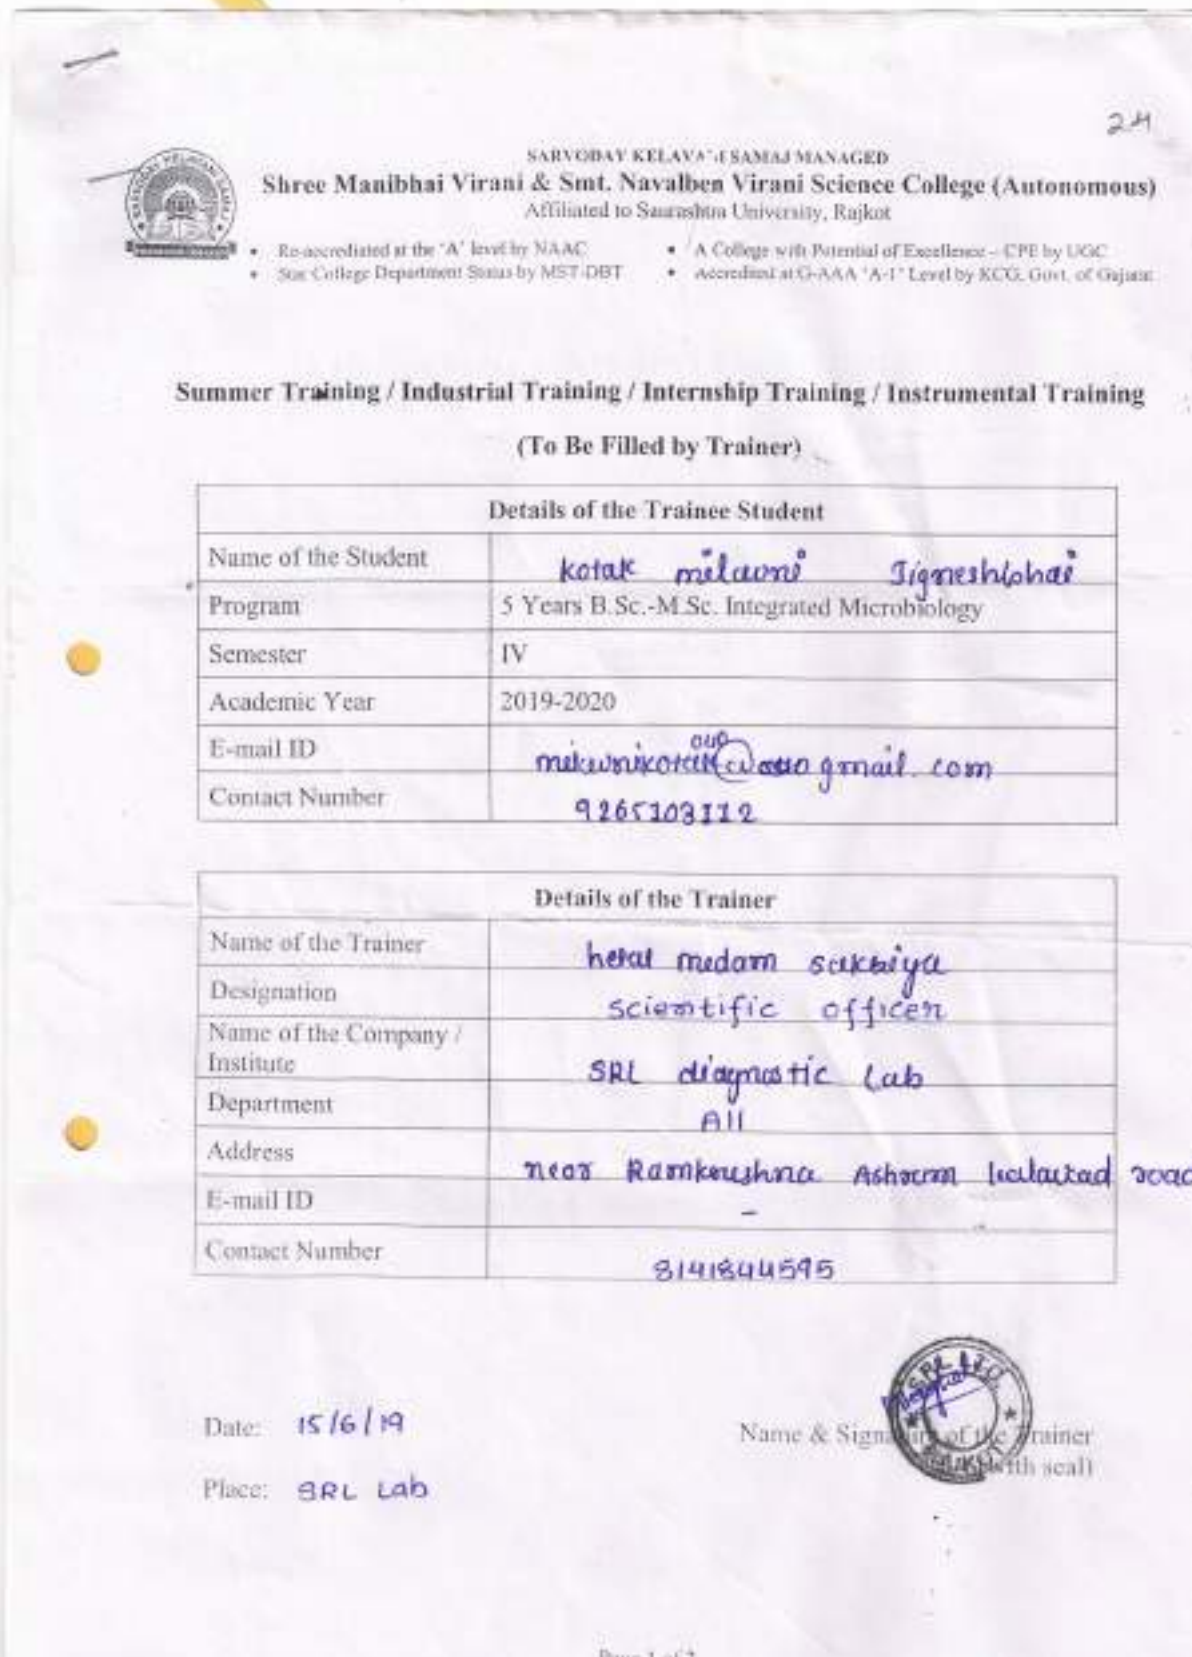 24
SARVODAY KELAVANI SAMAJ MANAGED
Shree Manibhai Virani & Smt. Navalben Virani Science College (Autonomous)
Affiliated to Saurashtra University, Rajkot
• Re-accrediated at the 'A' level by NAAC
• Star College Department Status by MST-DBT
• A College with Potential of Excellence – CPE by UGC
• Accredited at G-AAA 'A-1' Level by KCG, Govt. of Gujarat
Summer Training / Industrial Training / Internship Training / Instrumental Training
(To Be Filled by Trainer)
Details of the Trainee Student
Name of the Student kotak milavni Jigneshbhai
Program 5 Years B.Sc.-M.Sc. Integrated Microbiology
Semester IV
Academic Year 2019-2020
E-mail ID gmail.com
Contact Number 9265103112
Details of the Trainer
Name of the Trainer hetal medam
Designation scientific officer
Name of the Company /
Institute SRL diagnostic lab
Department All
Address near Ramkrushna Ashram kalawad road
E-mail ID -
Contact Number 8141844595
SRL LTD.
RAJKOT
Date: 15/6/19
Name & Signature of the Trainer
(with seal)
Place: SRL Lab
Page 1 of 2